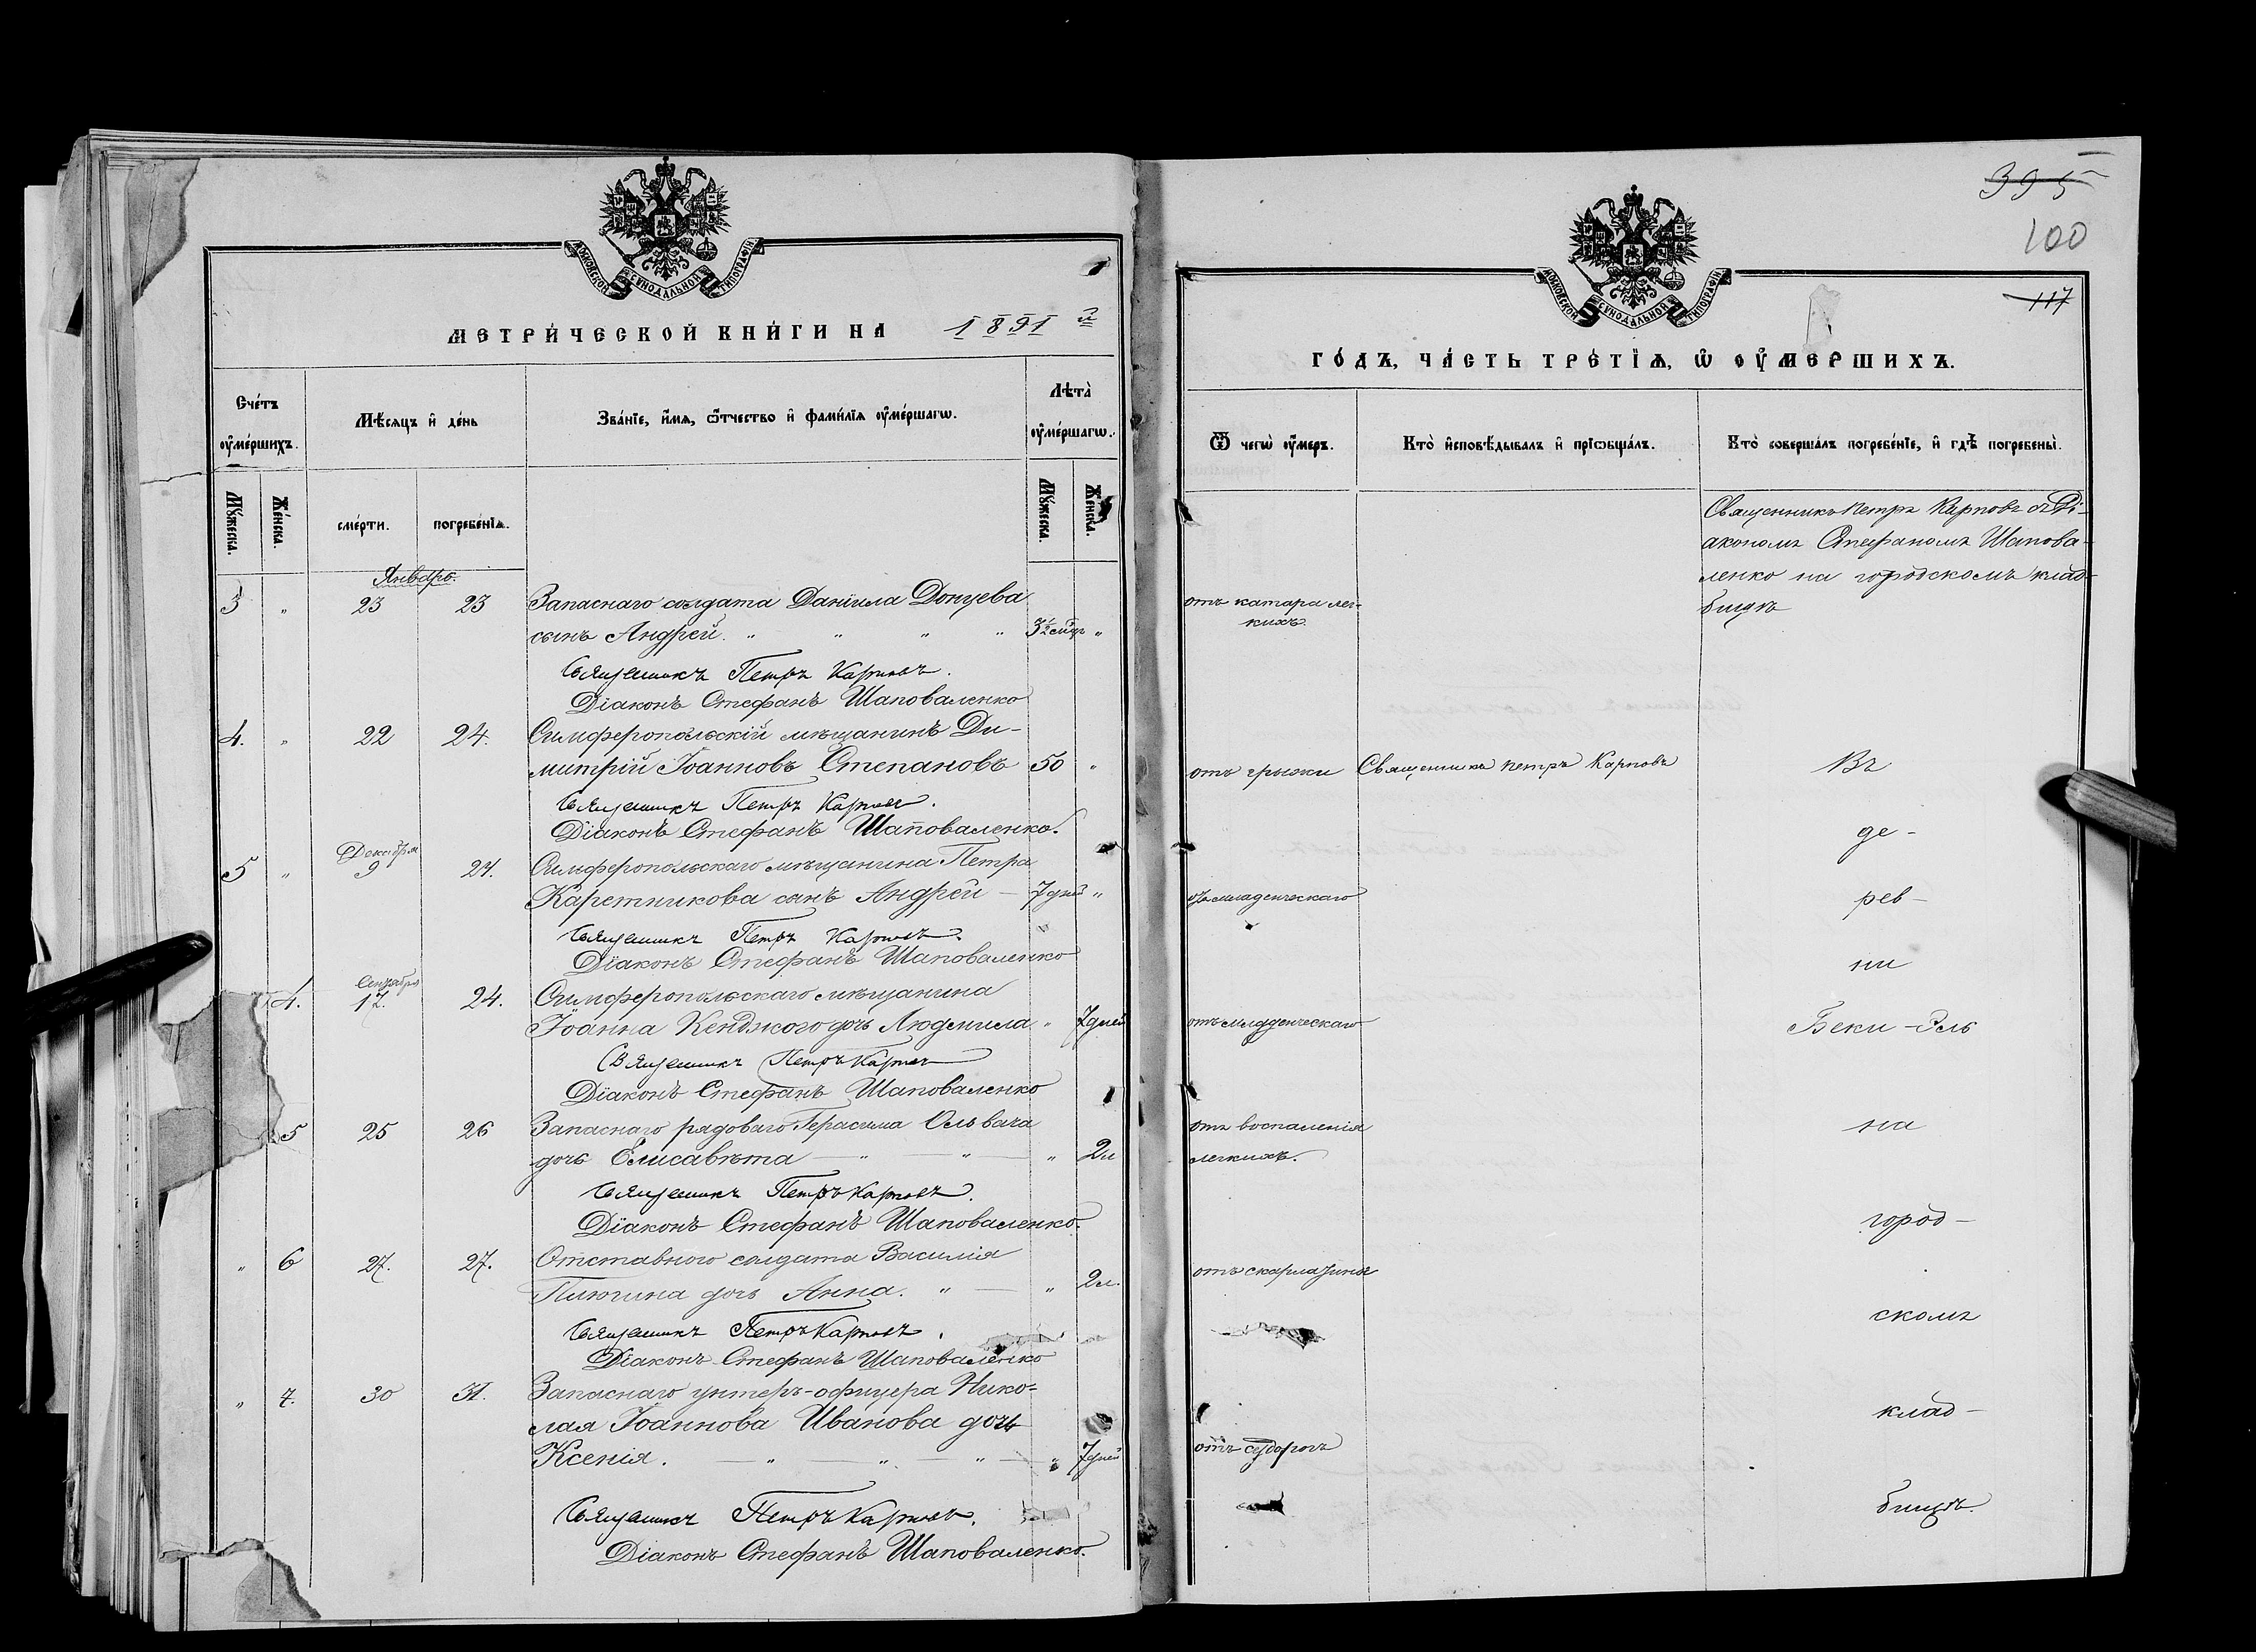 МОСКОВСКОЙ СѴНОДАЛЬНОЙ ТИПОГРАФІИ
МЕТРИ́ЧЕСКОЙ КНИ́ГИ НА 1891 й
Сче́тъ оу҆ме́ршихъ.
Мѣ́сяцъ и҆ де́нь
Зва́нїе, и҆́мѧ, ѻ҆́тчество и҆ фами́лїѧ оу҆ме́ршагѡ.
Лѣ́та оу҆ме́ршагѡ.
Мꙋ́жеска.
Же́нска.
сме́рти.
погребе́нїѧ.
Мꙋ́жеска.
Же́нска.
Январь.
3 " 23 23 Запаснаго солдата Даніила Донцева
сынъ Андрей. " " " " 3½ мѣц "
Священникъ Петръ Карповъ.
Діаконъ Стефанъ Шаповаленко
4. " 22 24. Симферопольскій мѣщанинъ Ди-
митрій Іоанновъ Степановъ 50 "
Священникъ Петръ Карповъ.
Діаконъ Стефанъ Шаповаленко.
Декабря
5 " 9 24. Симферопольскаго мѣщанина Петра
Каретникова сынъ Андрей — 7 дней "
Священникъ Петръ Карповъ.
Діаконъ Стефанъ Шаповаленко
Сентября
4. 17. 24. Симферопольскаго мѣщанина
Іоанна Кенджого дочь Людмила " 7 дней
Священникъ Петръ Карповъ
Діаконъ Стефанъ Шаповаленко
5 25 26 Запаснаго рядоваго Герасима Ольвача
дочь Елисавѣта — " — " — " 2 л
Священникъ Петръ Карповъ.
Діаконъ Стефанъ Шаповаленко.
" 6 27. 27. Отставного солдата Василія
Пилюгина дочь Анна. " — " 2 л.
Священникъ Петръ Карповъ.
Діаконъ Стефанъ Шаповаленко
" 7. 30 31. Запаснаго унтеръ-офицера Нико-
лая Іоаннова Иванова дочь
Ксенія. — " " — " — " 7 дней
Священникъ Петръ Карповъ.
Діаконъ Стефанъ Шаповаленко.
395
100
117
МОСКОВСКОЙ СѴНОДАЛЬНОЙ ТИПОГРАФІИ
ГО́ДЪ, ЧА́СТЬ ТРЕ́ТЇѦ, Ѡ҆ ОУ҆МЕ́РШИХЪ.
Ѿ чегѡ̀ оу҆́меръ.
Кто̀ и҆сповѣ́дывалъ и҆ прїѡбща́лъ.
Кто̀ соверша́лъ погребе́нїе, и҆ гдѣ̀ погребены̀.
Священникъ Петръ Карповъ съ Ді-
акономъ Стефаномъ Шапова-
ленко на городскомъ клад-
бищѣ
отъ катара лег-
кихъ.
отъ грыжи Священникъ Петръ Карповъ Въ
де-
отъ младенческаго рев-
ни
отъ младенческаго Беки-Эль
отъ воспаленія на
легкихъ.
город-
отъ скарлатины
скомъ
клад-
отъ судорогъ
бищѣ.